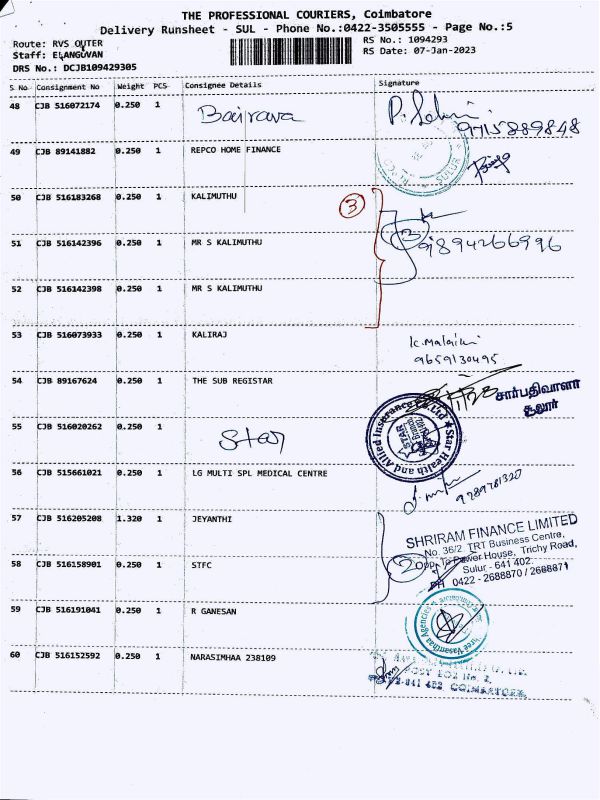 THE PROFESSIONAL COURIERS, Coimbatore
Delivery Runsheet - SUL - Phone No.:0422-3505555 - Page No.:5
Route: RVS OUTER
RS No.: 1094293
Staff: ELANGUVAN
RS Date: 07-Jan-2023
DRS No.: DCJB109429305
S No Consignment No Weight PCS Consignee Details Signature
48 CJB 516072174 0.250 1 Bairava
9715889848
49 CJB 89141882 0.250 1 REPCO HOME FINANCE
SULUR
50 CJB 516183268 0.250 1 KALIMUTHU 3
51 CJB 516142396 0.250 1 MR S KALIMUTHU 3 9894266996
52 CJB 516142398 0.250 1 MR S KALIMUTHU
53 CJB 516073933 0.250 1 KALIRAJ
9659130495
54 CJB 89167624 0.250 1 THE SUB REGISTAR
சார்பதிவாளர்
சூலூர்
55 CJB 516020262 0.250 1 Star
Star Health and Allied Insurance Co. Ltd
56 CJB 515661021 0.250 1 LG MULTI SPL MEDICAL CENTRE
9789781320
57 CJB 516205208 1.320 1 JEYANTHI
SHRIRAM FINANCE LIMITED
No. 36/2 TRT Business Centre,
Opp. To Power House, Trichy Road,
Sulur - 641 402.
PH 0422 - 2688870 / 2688871
58 CJB 516158901 0.250 1 STFC 2
59 CJB 516191041 0.250 1 R GANESAN
Shree Vasantham Agencies
60 CJB 516152592 0.250 1 NARASIMHAA 238109
POST BOX No. 2,
COIMBATORE.